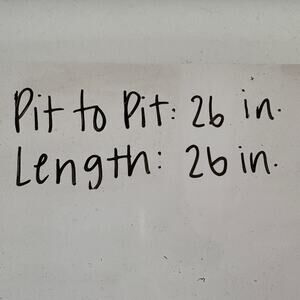 Pit to Pit: 26 in.
Length: 26 in.